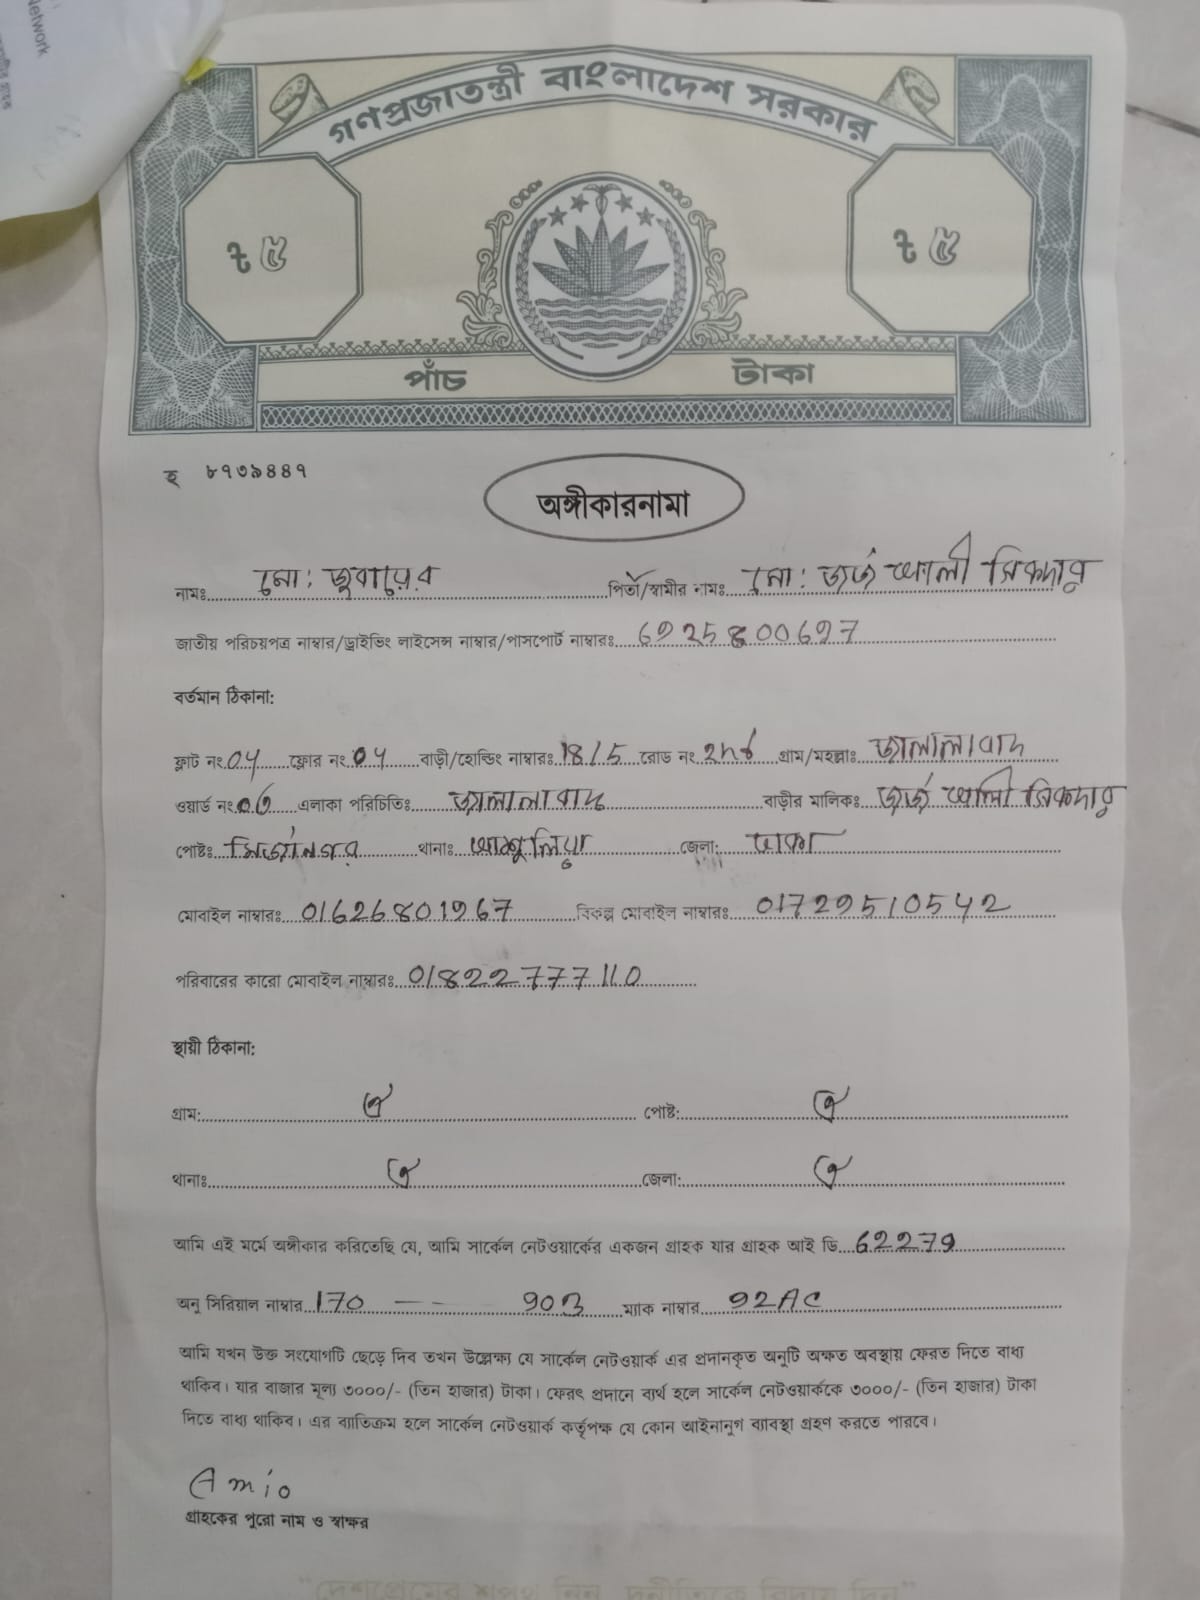 Network
গণপ্রজাতন্ত্রী বাংলাদেশ সরকার
৳ ৫ ৳ ৫
পাঁচ টাকা
হ ৮৭৩৯৪৪৭
অঙ্গীকারনামা
নামঃ মো: জুবায়ের পিতা/স্বামীর নামঃ মো: জর্জ আলী সিকদার
জাতীয় পরিচয়পত্র নাম্বার/ড্রাইভিং লাইসেন্স নাম্বার/পাসপোর্ট নাম্বারঃ 6925800697
বর্তমান ঠিকানা:
ফ্লাট নং 04 ফ্লোর নং 04 বাড়ী/হোল্ডিং নাম্বারঃ 18/5 রোড নং গ্রাম/মহল্লাঃ জালালাবাদ
ওয়ার্ড নং 06 এলাকা পরিচিতিঃ জালালাবাদ বাড়ীর মালিকঃ জর্জ আলী সিকদার
পোষ্টঃ মির্জানগর থানাঃ আশুলিয়া জেলা: ঢাকা
মোবাইল নাম্বারঃ 01626801967 বিকল্প মোবাইল নাম্বারঃ 01729510542
পরিবারের কারো মোবাইল নাম্বারঃ 01822777110
স্থায়ী ঠিকানা:
গ্রাম: ঐ পোষ্ট: ঐ
থানাঃ ঐ জেলা: ঐ
আমি এই মর্মে অঙ্গীকার করিতেছি যে, আমি সার্কেল নেটওয়ার্কের একজন গ্রাহক যার গ্রাহক আই ডি 62279
অনু সিরিয়াল নাম্বার 170 — 903 ম্যাক নাম্বার 92AC
আমি যখন উক্ত সংযোগটি ছেড়ে দিব তখন উল্লেক্ষ্য যে সার্কেল নেটওয়ার্ক এর প্রদানকৃত অনুটি অক্ষত অবস্থায় ফেরত দিতে বাধ্য
থাকিব। যার বাজার মূল্য ৩০০০/- (তিন হাজার) টাকা। ফেরৎ প্রদানে ব্যর্থ হলে সার্কেল নেটওয়ার্ককে ৩০০০/- (তিন হাজার) টাকা
দিতে বাধ্য থাকিব। এর ব্যতিক্রম হলে সার্কেল নেটওয়ার্ক কর্তৃপক্ষ যে কোন আইনানুগ ব্যাবস্থা গ্রহণ করতে পারবে।
Amio
গ্রাহকের পুরো নাম ও স্বাক্ষর
"দেশপ্রেমের শপথ নিন, দুর্নীতিকে বিদায় দিন"